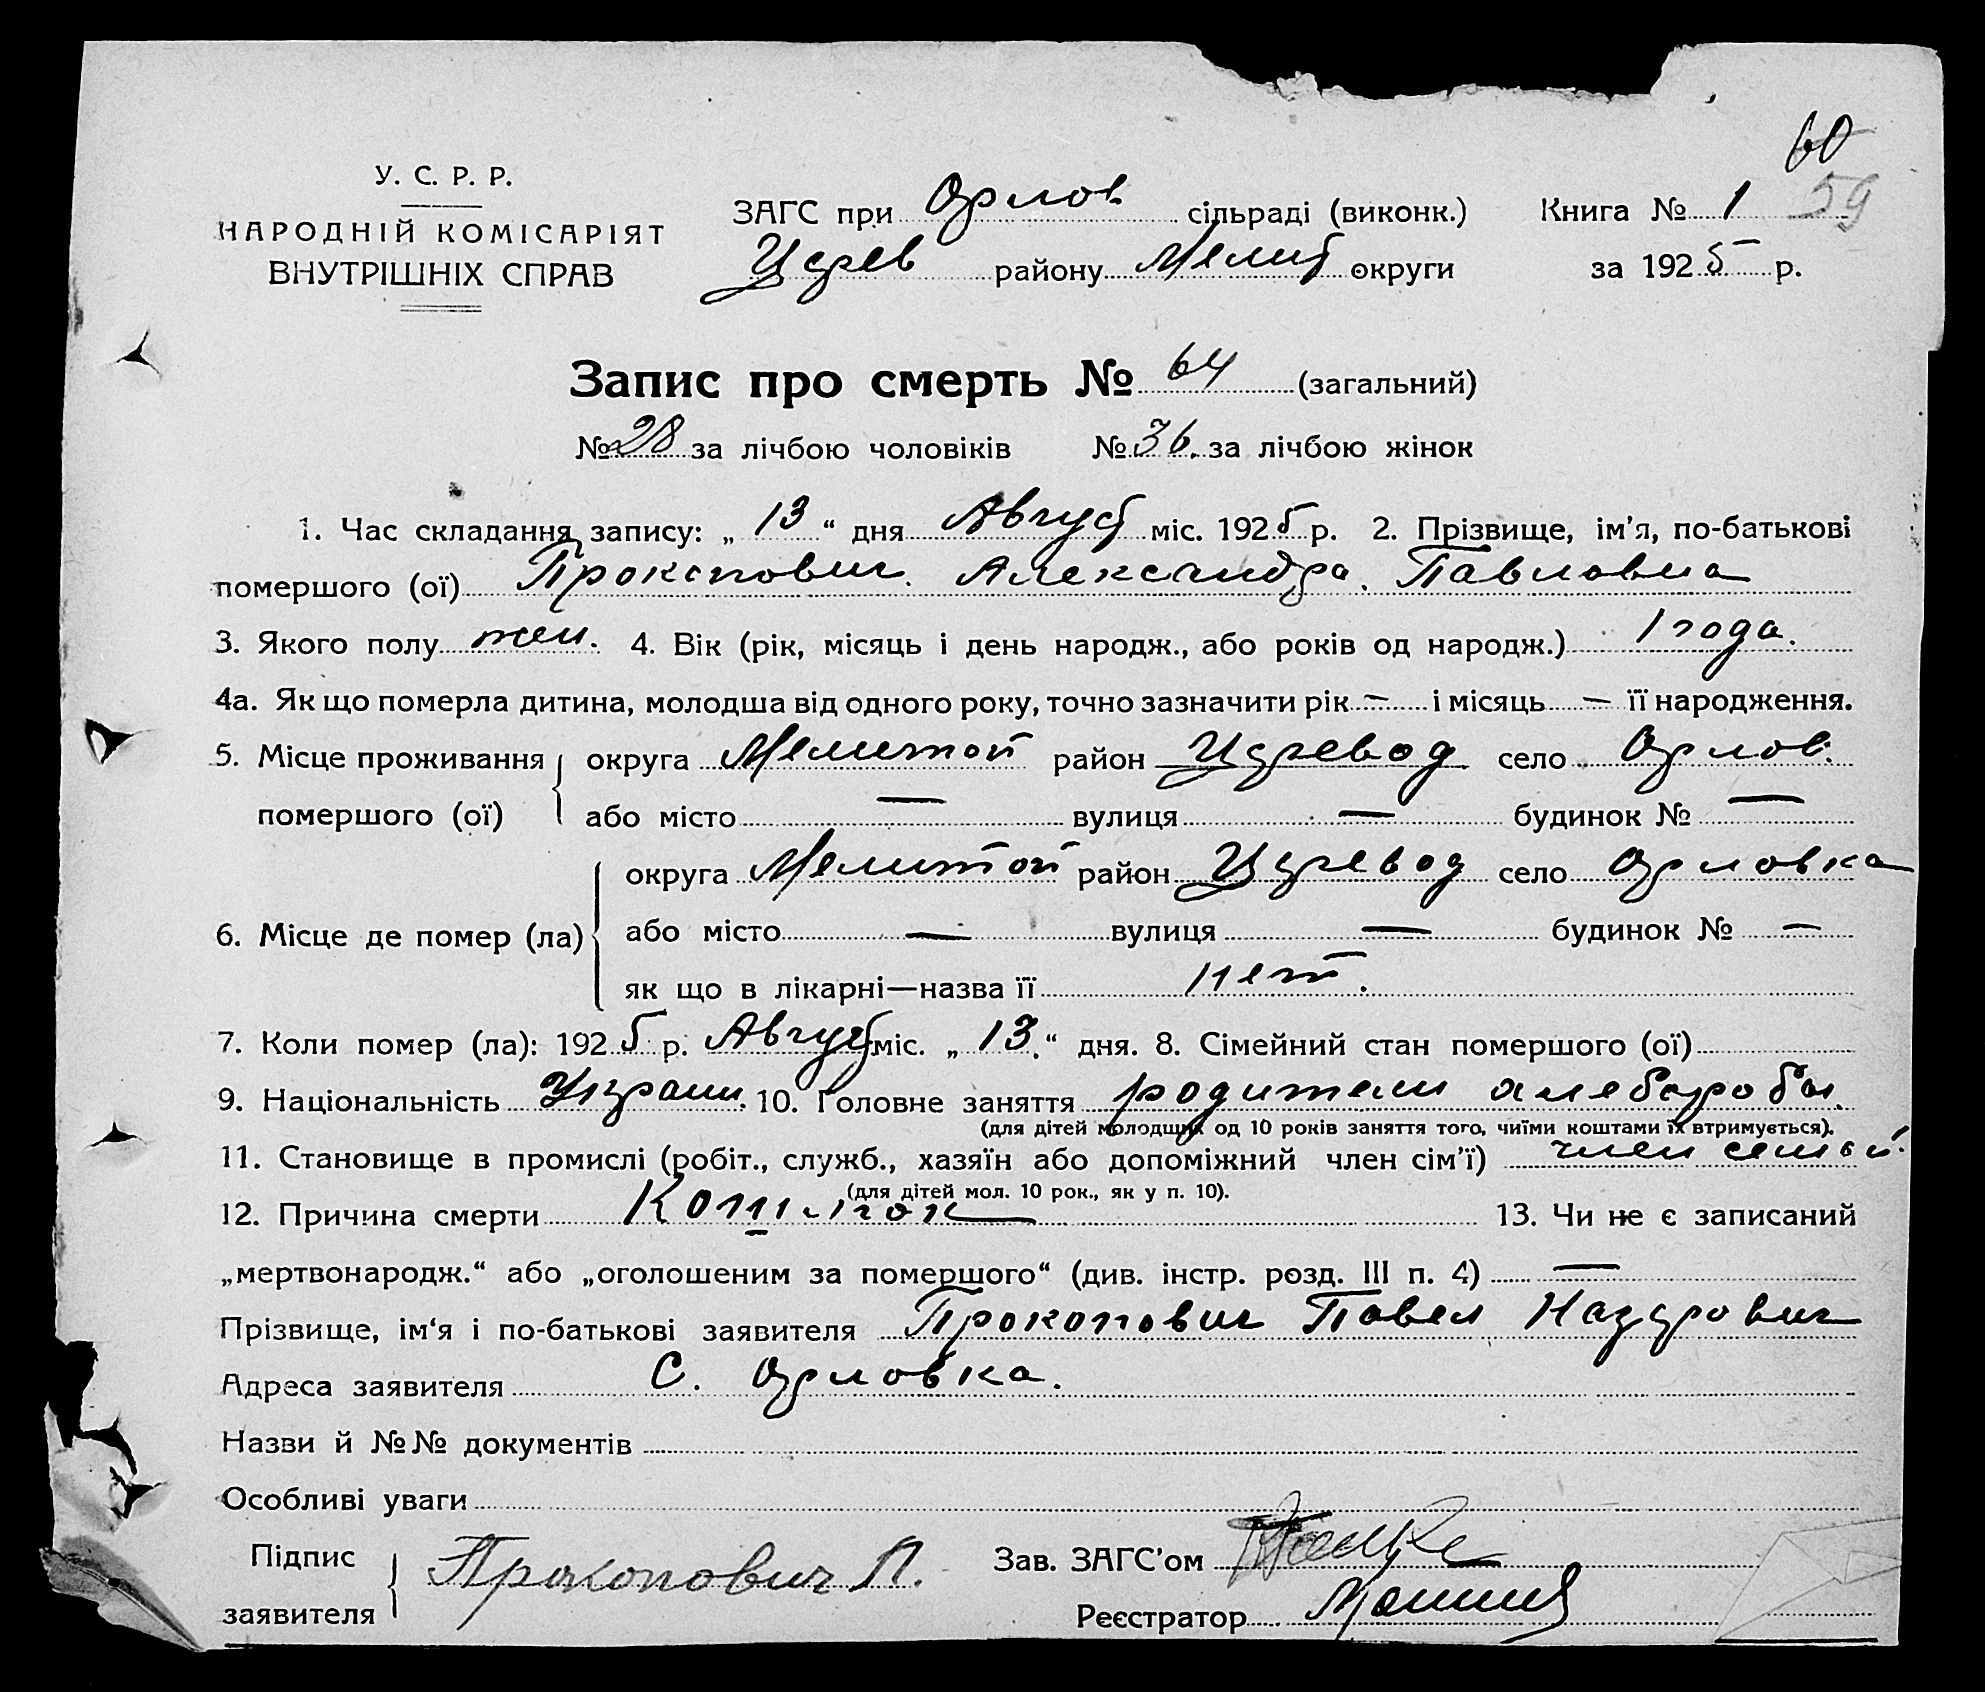 60
У. С. Р. Р.
НАРОДНІЙ КОМІСАРІЯТ
ВНУТРІШНІХ СПРАВ
ЗАГС при Орлов сільраді (виконк.) Книга № 1 59
Цгрев району Мелит округи за 1925 р.
Запис про смерть № 64 (загальний)
№ 28 за лічбою чоловіків № 36. за лічбою жінок
1. Час складання запису: „ 13 “ дня Август міс. 1925 р. 2. Прізвище, ім’я, по-батькові
помершого (ої) Прокопович. Александра. Павловна
3. Якого полу жен. 4. Вік (рік, місяць і день народж., або років од народж.) 1 года.
4а. Як що померла дитина, молодша від одного року, точно зазначити рік — і місяць — її народження.
5. Місце проживання округа Мелитоп район Цгревод село Орлов.
помершого (ої) або місто — вулиця — будинок № —
округа Мелитоп район Цгревод село Орловка
6. Місце де помер (ла) або місто — вулиця — будинок № —
як що в лікарні—назва її нет.
7. Коли помер (ла): 1925 р. Август міс. „ 13. “ дня. 8. Сімейний стан помершого (ої)
9. Національність Украин. 10. Головне заняття родители хлеборобы.
(для дітей молодших од 10 років заняття того, чиїми коштами їх втримується).
11. Становище в промислі (робіт., служб., хазяїн або допоміжний член сім’ї) член семьи.
(для дітей мол. 10 рок., як у п. 10).
12. Причина смерти 13. Чи не є записаний
„мертвонародж.“ або „оголошеним за помершого“ (див. інстр. розд. III п. 4) —
Прізвище, ім‘я і по-батькові заявителя Прокопович Павел Назарович
Адреса заявителя С. Орловка.
Назви й №№ документів
Особливі уваги
Підпис заявителя Прокопович П. Зав. ЗАГС’ом
Реєстратор